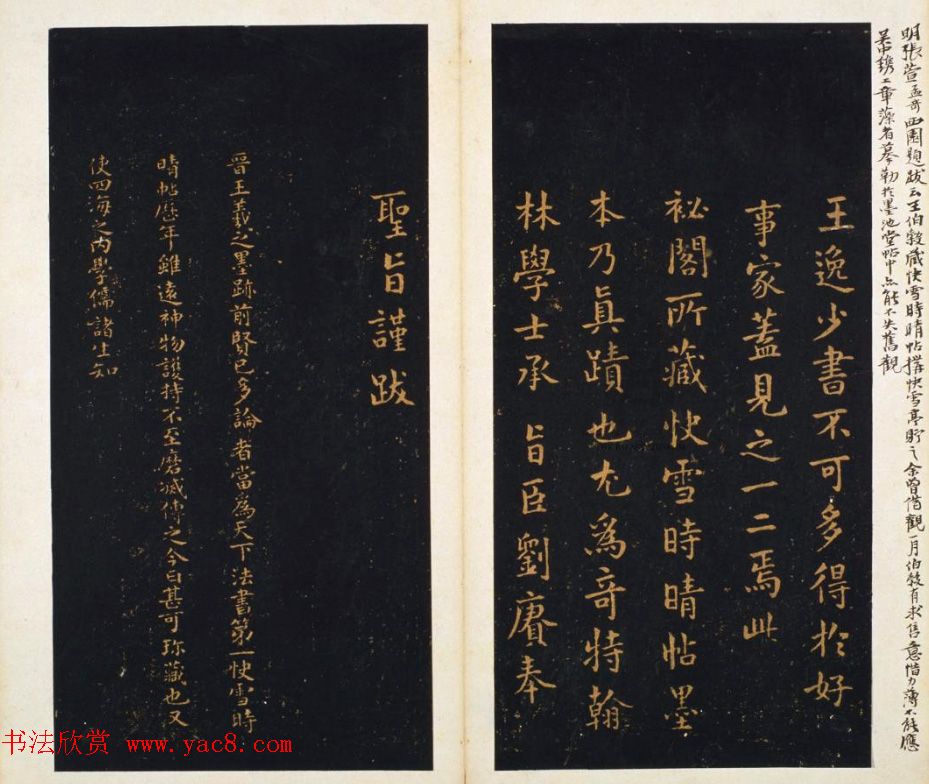 明張萱孟奇西園題跋云王伯穀藏快雪時晴帖搆快雪亭貯之余曾借觀一月伯穀有求售意惜力薄不能應
吴中鐫工章藻者摹勒於墨池堂帖中亦能不失舊觀
王逸少書不可多得於好
事家蓋見之一二焉此
祕閣所藏快雪時晴帖墨
本乃眞蹟也尤爲竒特翰
林學士承旨臣劉賡奉
聖旨謹跋
晉王羲之墨跡前賢已多論者當爲天下法書第一快雪時
晴帖歷年雖遠神物護持不至磨滅傳之今日甚可珎藏也又
使四海之内學儒諸生知
书法欣赏 www.yac8.com